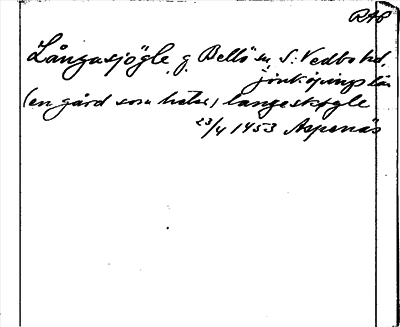 RAP
Långasjögle, g. Bellö sn, S. Vedbo hd,
jönköpings län
(en gård som heter) langeskøgle
23/4 1453 Aspenäs